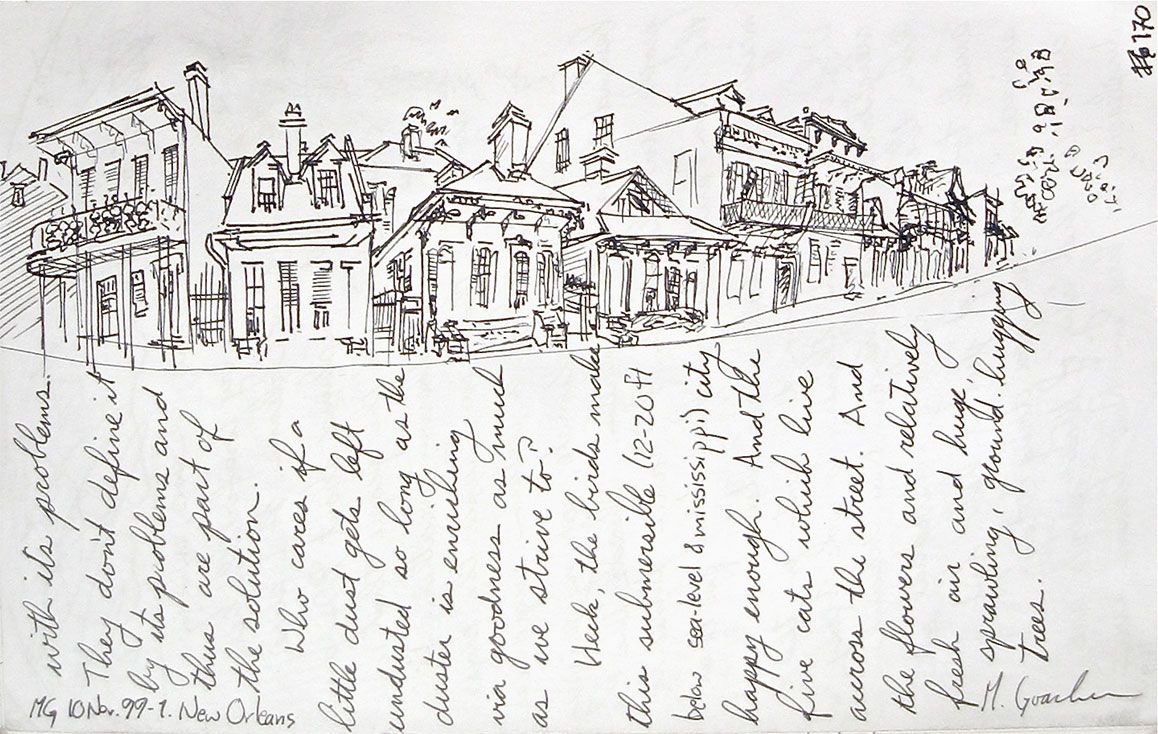 170
with its problems.
They don't define it
by its problems and
thus are part of
the solution.
Who cares if a
little dust gets left
undusted so long as the
duster is
via goodness as much
as we strive to?
Heck, the birds make
this submersible (12-20 ft
below sea-level & mississippi) city
happy enough. And the
five cats which live
across the street. And
the flowers and relatively
fresh air and huge,
sprawling, ground-hugging
trees.
MG 10 Nov. 99-1. New Orleans
M.